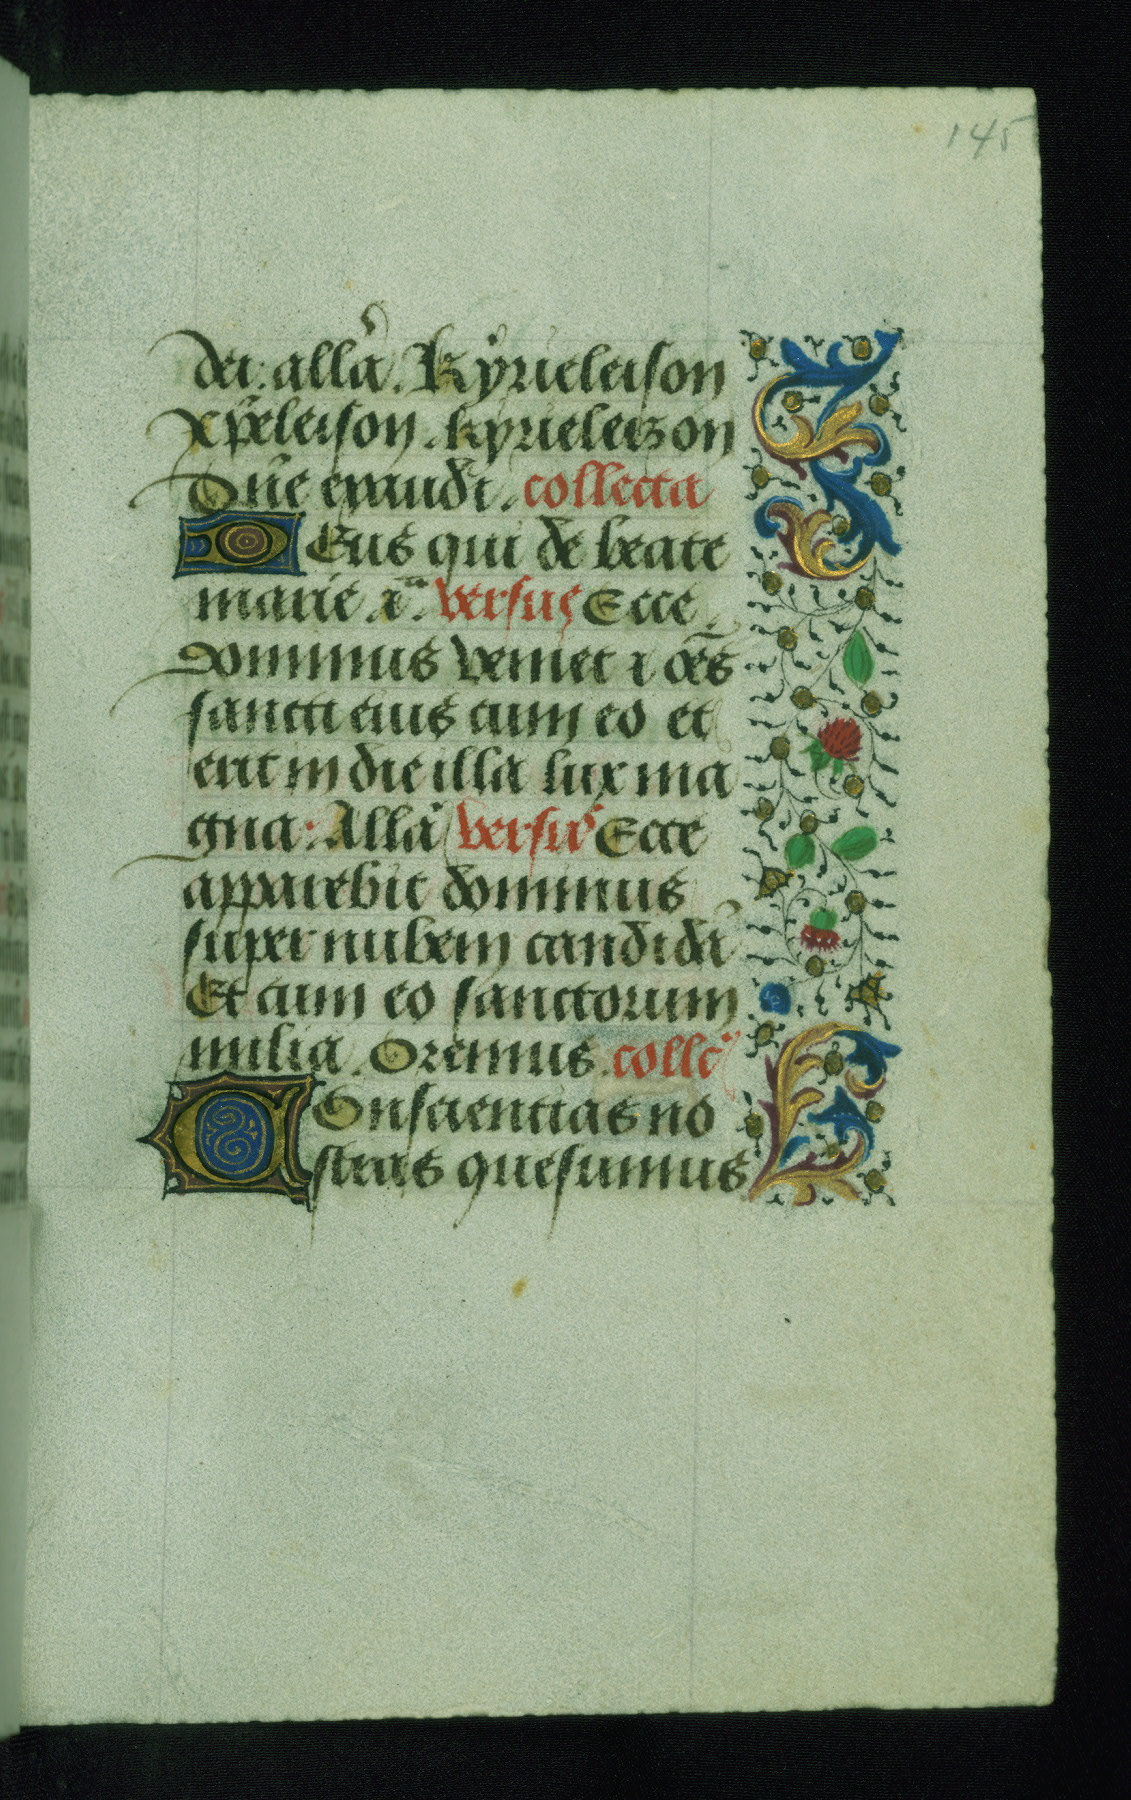 145
dei: allā. Kÿrieleison
xp̄eleison. kyrieleizon
Dn̄e exaudi. collecta
DEus qui de beate
marie .rͣ. versus Ecce
dominus veniet ⁊ oēs
sancti eius cum eo et
erit in die illa lux ma
gna: Allā versus Ecce
apparebit dominus
super nubem candidā
Et cum eo sanctorum
milia. Oremus. collc̄
COnscientias no
stras quesumus